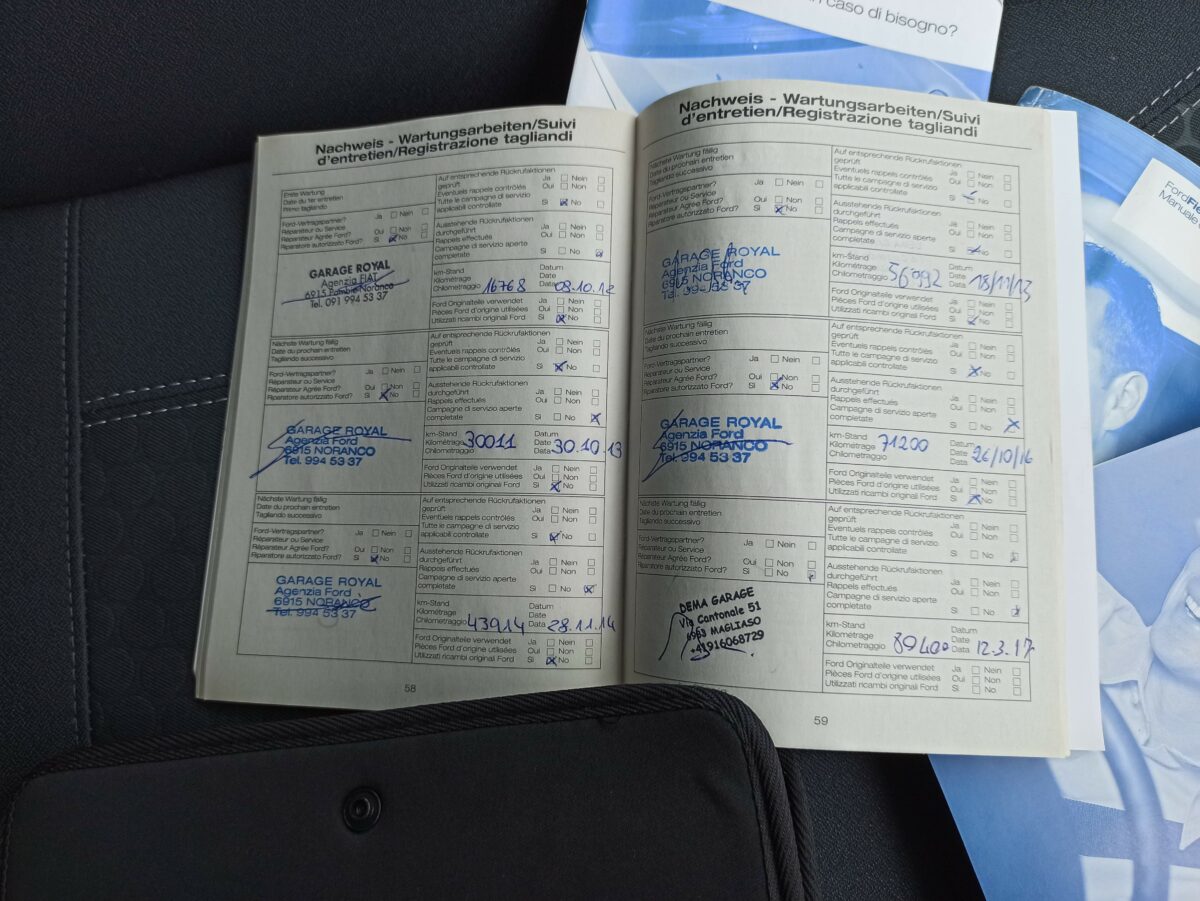 n caso di bisogno?
Nachweis - Wartungsarbeiten/Suivi
d'entretien/Registrazione tagliandi
Erste Wartung
Date du 1er entretien
Primo tagliando
Auf entsprechende Rückrufaktionen
geprüft
Eventuels rappels contrôlés
Tutte le campagne di servizio
applicabili controllate
Ja Nein
Oui Non
Si No
Ford-Vertragspartner?
Réparateur ou Service
Réparateur Agréé Ford?
Riparatore autorizzato Ford?
Ja Nein
Oui Non
Si No
Ausstehende Rückrufaktionen
durchgeführt
Rappels effectués
Campagne di servizio aperte
completate
Ja Nein
Oui Non
Si No
GARAGE ROYAL
Agenzia FIAT
6915 Pambio-Noranco
Tel. 091 994 53 37
km-Stand
Kilométrage
Chilometraggio 16768
Datum
Date
Data 08.10.12
Ford Originalteile verwendet
Pièces Ford d'origine utilisées
Utilizzati ricambi originali Ford
Ja Nein
Oui Non
Si No
Nächste Wartung fällig
Date du prochain entretien
Tagliando successivo
Auf entsprechende Rückrufaktionen
geprüft
Eventuels rappels contrôlés
Tutte le campagne di servizio
applicabili controllate
Ja Nein
Oui Non
Si No
Ford-Vertragspartner?
Réparateur ou Service
Réparateur Agréé Ford?
Riparatore autorizzato Ford?
Ja Nein
Oui Non
Si No
Ausstehende Rückrufaktionen
durchgeführt
Rappels effectués
Campagne di servizio aperte
completate
Ja Nein
Oui Non
Si No
GARAGE ROYAL
Agenzia Ford
6915 NORANCO
Tel. 994 53 37
km-Stand
Kilométrage
Chilometraggio 30011
Datum
Date
Data 30.10.13
Ford Originalteile verwendet
Pièces Ford d'origine utilisées
Utilizzati ricambi originali Ford
Ja Nein
Oui Non
Si No
Nächste Wartung fällig
Date du prochain entretien
Tagliando successivo
Auf entsprechende Rückrufaktionen
geprüft
Eventuels rappels contrôlés
Tutte le campagne di servizio
applicabili controllate
Ja Nein
Oui Non
Si No
Ford-Vertragspartner?
Réparateur ou Service
Réparateur Agréé Ford?
Riparatore autorizzato Ford?
Ja Nein
Oui Non
Si No
Ausstehende Rückrufaktionen
durchgeführt
Rappels effectués
Campagne di servizio aperte
completate
Ja Nein
Oui Non
Si No
GARAGE ROYAL
Agenzia Ford
6915 NORANCO
Tel. 994 53 37
km-Stand
Kilométrage
Chilometraggio 43914
Datum
Date
Data 28.11.14
Ford Originalteile verwendet
Pièces Ford d'origine utilisées
Utilizzati ricambi originali Ford
Ja Nein
Oui Non
Si No
58
Nachweis - Wartungsarbeiten/Suivi
d'entretien/Registrazione tagliandi
Nächste Wartung fällig
Date du prochain entretien
Tagliando successivo
Auf entsprechende Rückrufaktionen
geprüft
Eventuels rappels contrôlés
Tutte le campagne di servizio
applicabili controllate
Ja Nein
Oui Non
Si No
Ford-Vertragspartner?
Réparateur ou Service
Réparateur Agréé Ford?
Riparatore autorizzato Ford?
Ja Nein
Oui Non
Si No
Ausstehende Rückrufaktionen
durchgeführt
Rappels effectués
Campagne di servizio aperte
completate
Ja Nein
Oui Non
Si No
GARAGE ROYAL
Agenzia Ford
6915 NORANCO
Tel. 994 53 37
km-Stand
Kilométrage
Chilometraggio 56992
Datum
Date
Data 18/11/13
Ford Originalteile verwendet
Pièces Ford d'origine utilisées
Utilizzati ricambi originali Ford
Ja Nein
Oui Non
Si No
Nächste Wartung fällig
Date du prochain entretien
Tagliando successivo
Auf entsprechende Rückrufaktionen
geprüft
Eventuels rappels contrôlés
Tutte le campagne di servizio
applicabili controllate
Ja Nein
Oui Non
Si No
Ford-Vertragspartner?
Réparateur ou Service
Réparateur Agréé Ford?
Riparatore autorizzato Ford?
Ja Nein
Oui Non
Si No
Ausstehende Rückrufaktionen
durchgeführt
Rappels effectués
Campagne di servizio aperte
completate
Ja Nein
Oui Non
Si No
GARAGE ROYAL
Agenzia Ford
6915 NORANCO
Tel. 994 53 37
km-Stand
Kilométrage
Chilometraggio 71200
Datum
Date
Data 26/10/16
Ford Originalteile verwendet
Pièces Ford d'origine utilisées
Utilizzati ricambi originali Ford
Ja Nein
Oui Non
Si No
Nächste Wartung fällig
Date du prochain entretien
Tagliando successivo
Auf entsprechende Rückrufaktionen
geprüft
Eventuels rappels contrôlés
Tutte le campagne di servizio
applicabili controllate
Ja Nein
Oui Non
Si No
Ford-Vertragspartner?
Réparateur ou Service
Réparateur Agréé Ford?
Riparatore autorizzato Ford?
Ja Nein
Oui Non
Si No
Ausstehende Rückrufaktionen
durchgeführt
Rappels effectués
Campagne di servizio aperte
completate
Ja Nein
Oui Non
Si No
DEMA GARAGE
Via Cantonale 51
6983 MAGLIASO
+41916068729
km-Stand
Kilométrage
Chilometraggio 89400
Datum
Date
Data 12.3.17
Ford Originalteile verwendet
Pièces Ford d'origine utilisées
Utilizzati ricambi originali Ford
Ja Nein
Oui Non
Si No
59
FordFle
Manuale